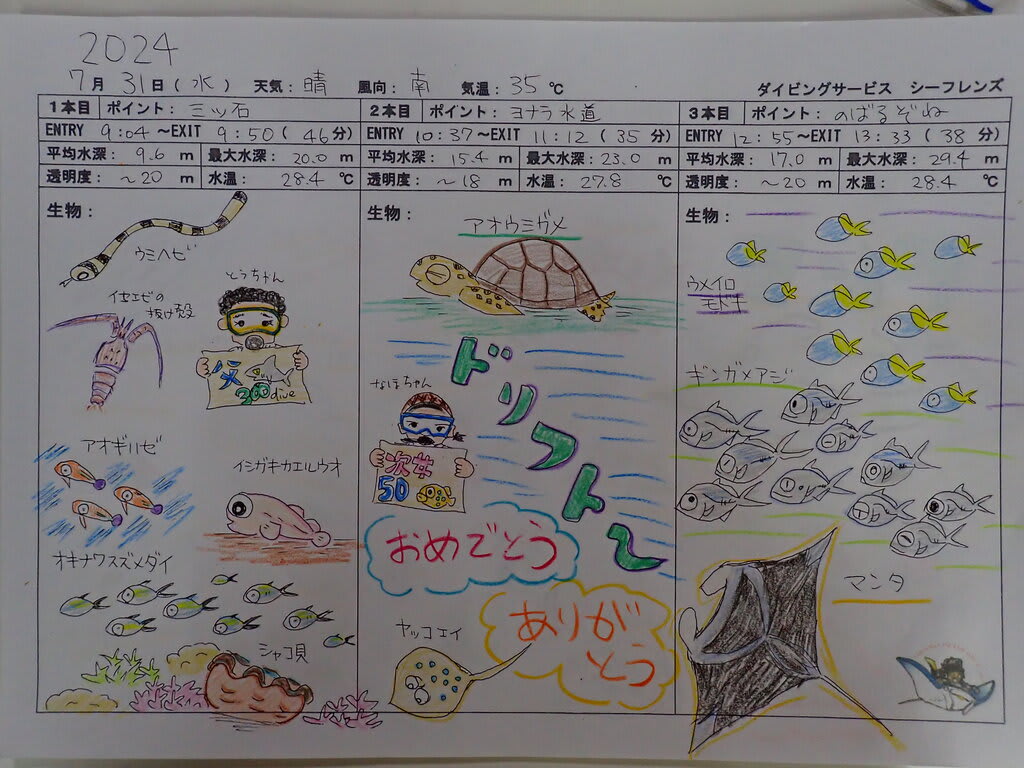 2024
7月 31日(水) 天気:晴 風向:南 気温:35℃ ダイビングサービス シーフレンズ
1本目 ポイント: 三ッ石
ENTRY 9:04~EXIT 9:50( 46分)
平均水深: 9.6 m 最大水深: 20.0 m
透明度: ~20 m 水温: 28.4 ℃
生物:
ウミヘビ
イセエビの
抜け殻
とうちゃん
父
300dive
アオギハゼ
イシガキカエルウオ
オキナワスズメダイ
シャコ貝
2本目 ポイント: ヨナラ水道
ENTRY 10:37~EXIT 11:12 (35分)
平均水深: 15.4 m 最大水深: 23.0 m
透明度: ~18 m 水温: 27.8 ℃
生物:
アオウミガメ
ドリフト~
なほちゃん
次女
50
おめでとう
ありが
とう
ヤッコエイ
3本目 ポイント: のばるぞね
ENTRY 12:55~EXIT 13:33 (38分)
平均水深: 17.0 m 最大水深: 29.4 m
透明度: ~20 m 水温: 28.4 ℃
生物:
ウメイロ
モドキ
ギンガメアジ
マンタ